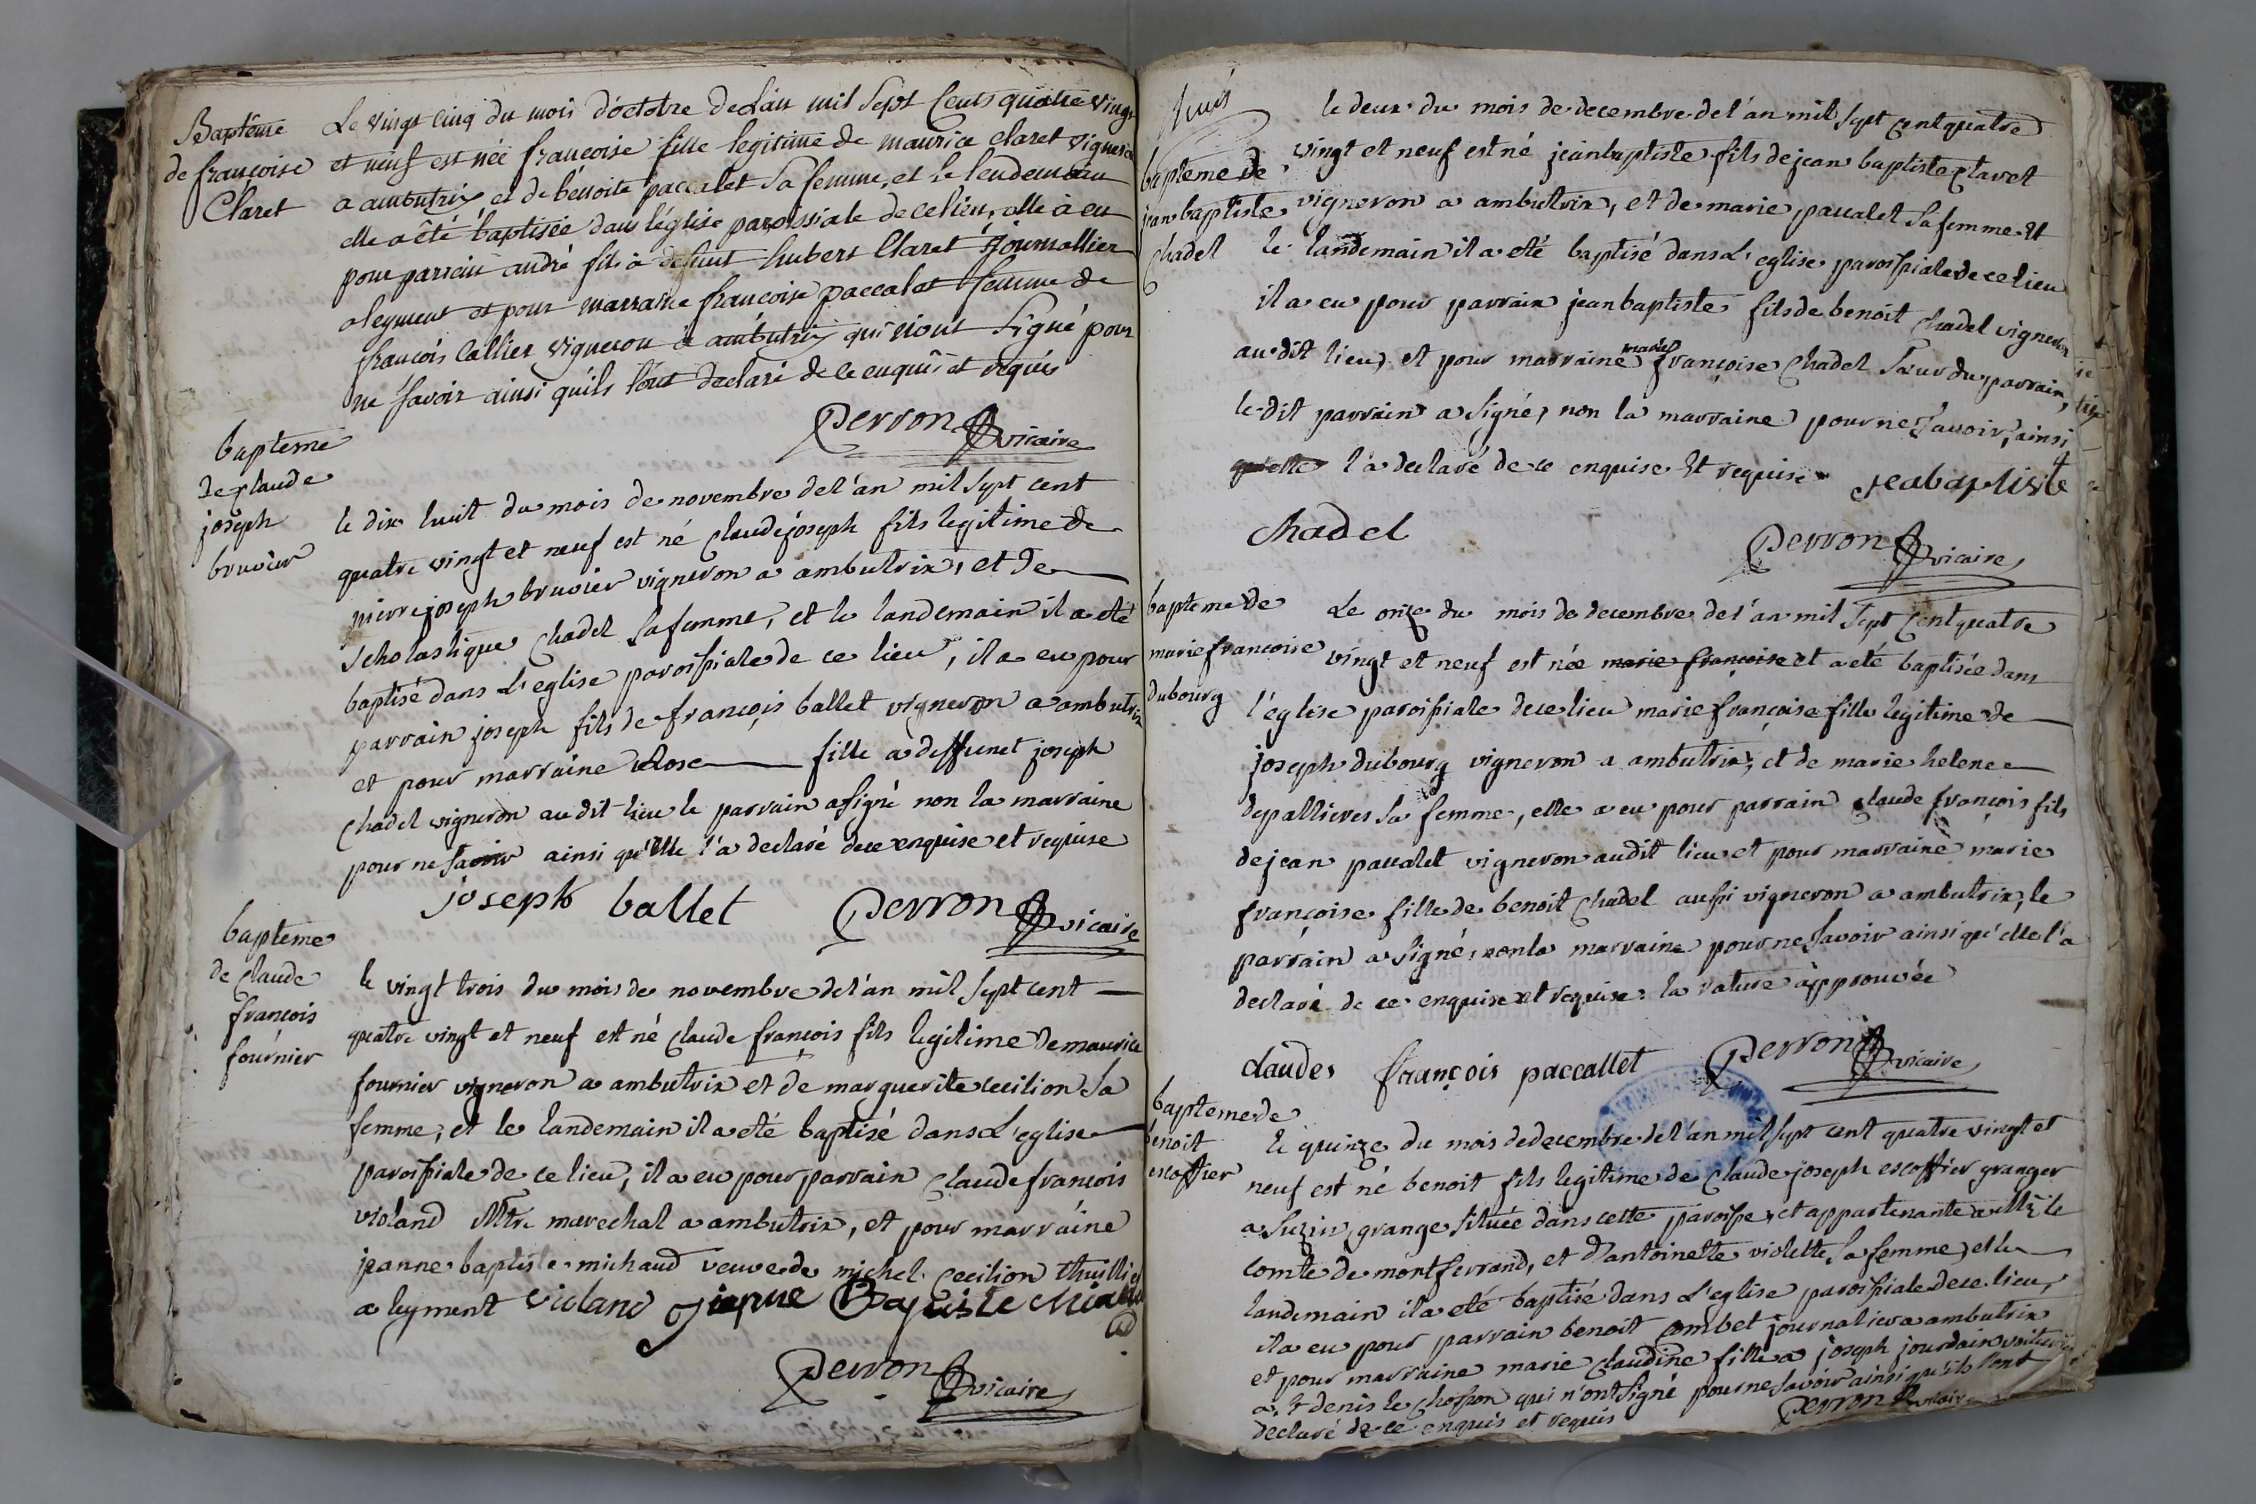 Baptême
de françoise
Claret
Le vingt cinq du mois d'octobre de L'an mil Sept Cents quatre vingt
et neuf est née françoise fille legitime de maurice Claret vigneron
a ambutrix et de benoite paccalet Sa femme, et le lendemain
elle a été baptisée dans l'église paroissiale de ce lieu, elle à eu
pour parrain andré fils à défunt hubert Claret journallier
a leyment et pour marraine françoise paccalet femme de
françois Callier vigneron à ambutrix qui n'ont Signé pour
ne Savoir ainsi qu'ils l'ont declaré de ce enquis et requis
Perron vicaire
bapteme
de claude
joseph
bruvier
le dix huit du mois de novembre de l'an mil Sept cent
quatre vingt et neuf est né Claude joseph fils legitime de
pierre joseph bruvier vigneron a ambutrix, et de
Scholastique Chadel Sa femme, et le landemain il a eté
baptisé dans L'eglise paroissiale de ce lieu, il a eu pour
parrain joseph fils de françois ballet vigneron a ambutrix
et pour marraine Rose fille a deffunct joseph
Chadel vigneron au dit lieu le parrain a Signé non la marraine
pour ne Savoir ainsi qu'Elle l'a declaré de ce enquise et requise
joseph ballet Perron vicaire
bapteme
de Claude
françois
fournier
le vingt trois du mois de novembre de l'an mil Sept cent
quatre vingt et neuf est né Claude françois fils legitime de maurice
fournier vigneron a ambutrix et de marguerite cecilion Sa
femme, et le landemain il a eté baptisé dans L'eglise
paroissiale de ce lieu, il a eu pour parrain Claude françois
violand Mtre marechal a ambutrix, et pour marraine
jeanne baptiste michaud veuve de michel Cecilion thuillier
a leyment violand Baptiste
Perron vicaire
bapteme de
jean baptiste
Chadel
le deux du mois de decembre de l'an mil Sept cent quatre
vingt et neuf est né jean baptiste fils de jean baptiste Claret
vigneron a ambutrix, et de marie paccalet Sa femme Et
le landemain il a eté baptisé dans L'eglise paroissiale de ce lieu
il a eu pour parrain jean baptiste fils de benoit Chadel vigneron
au dit lieu et pour marraine marie françoise Chadel Soeur du parrain,
le dit parrain a Signé, non la marraine pour ne Savoir, ainsi
qu'elle l'a declaré de ce enquise Et requise jeabaptiste
Chadel
Perron vicaire
bapteme de
marie françoise
dubourg
Le onze du mois de decembre de l'an mil Sept Cent quatre
vingt et neuf est née marie françoise et a eté baptisée dans
l'église paroissiale de ce lieu marie françoise fille legitime de
joseph dubourg vigneron a ambutrix, et de marie helene
depallieres Sa femme, elle a eu pour parrain Claude françois fils
de jean paccalet vigneron au dit lieu et pour marraine marie
françoise fille de benoit Chadel aussi vigneron a ambutrix, le
parrain a Signé, non la marraine pour ne Savoir ainsi qu'elle l'a
declaré de ce enquise et requise. la rature approuvée
claude françois paccallet Perron vicaire
bapteme de
benoit
escoffier
le quinze du mois de decembre de l'an mil Sept cent quatre vingt et
neuf est né benoit fils legitime de Claude joseph escoffier granger
a Suzin, grange Située dans cette paroisse, et appartenante a Mr le
comte de montferrand, et d'antoinette violette Sa femme, et le
landemain il a eté baptisé dans L'eglise paroissiale de ce lieu,
il a eu pour parrain benoit Combet journalier a ambutrix
et pour marraine marie Claudine fille a joseph jourdain voiturier
a St denis le Chosson qui n'ont Signé pour ne Savoir ainsi qu'ils l'ont
declaré de ce enquis et requis Perron vicaire